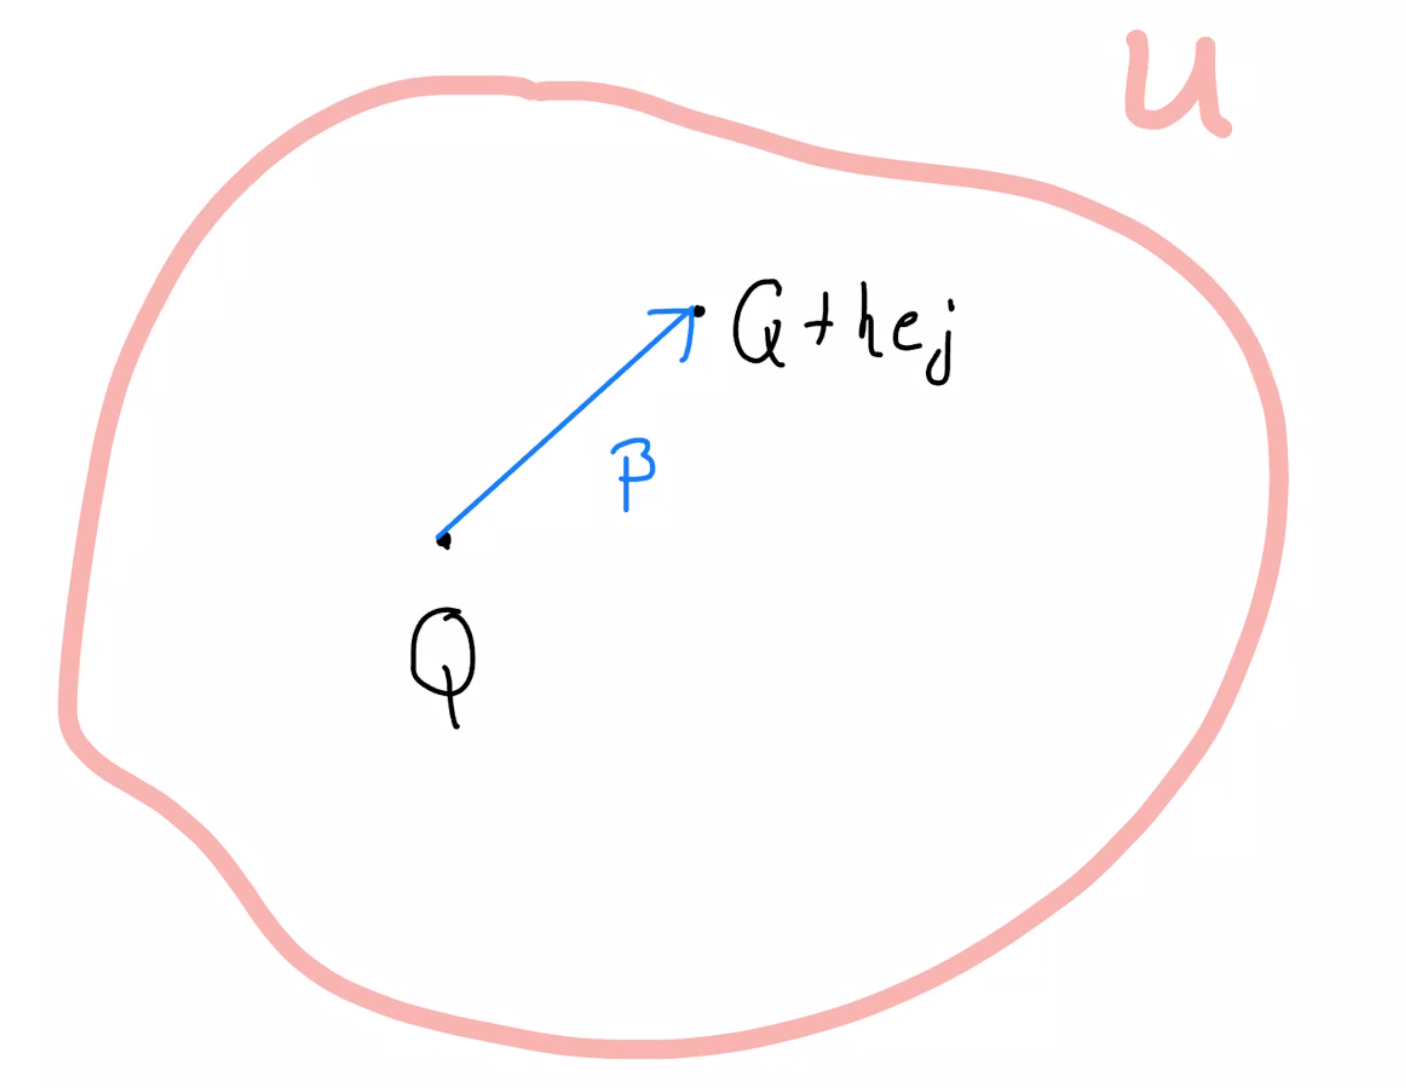 U
Q + hej
β
Q